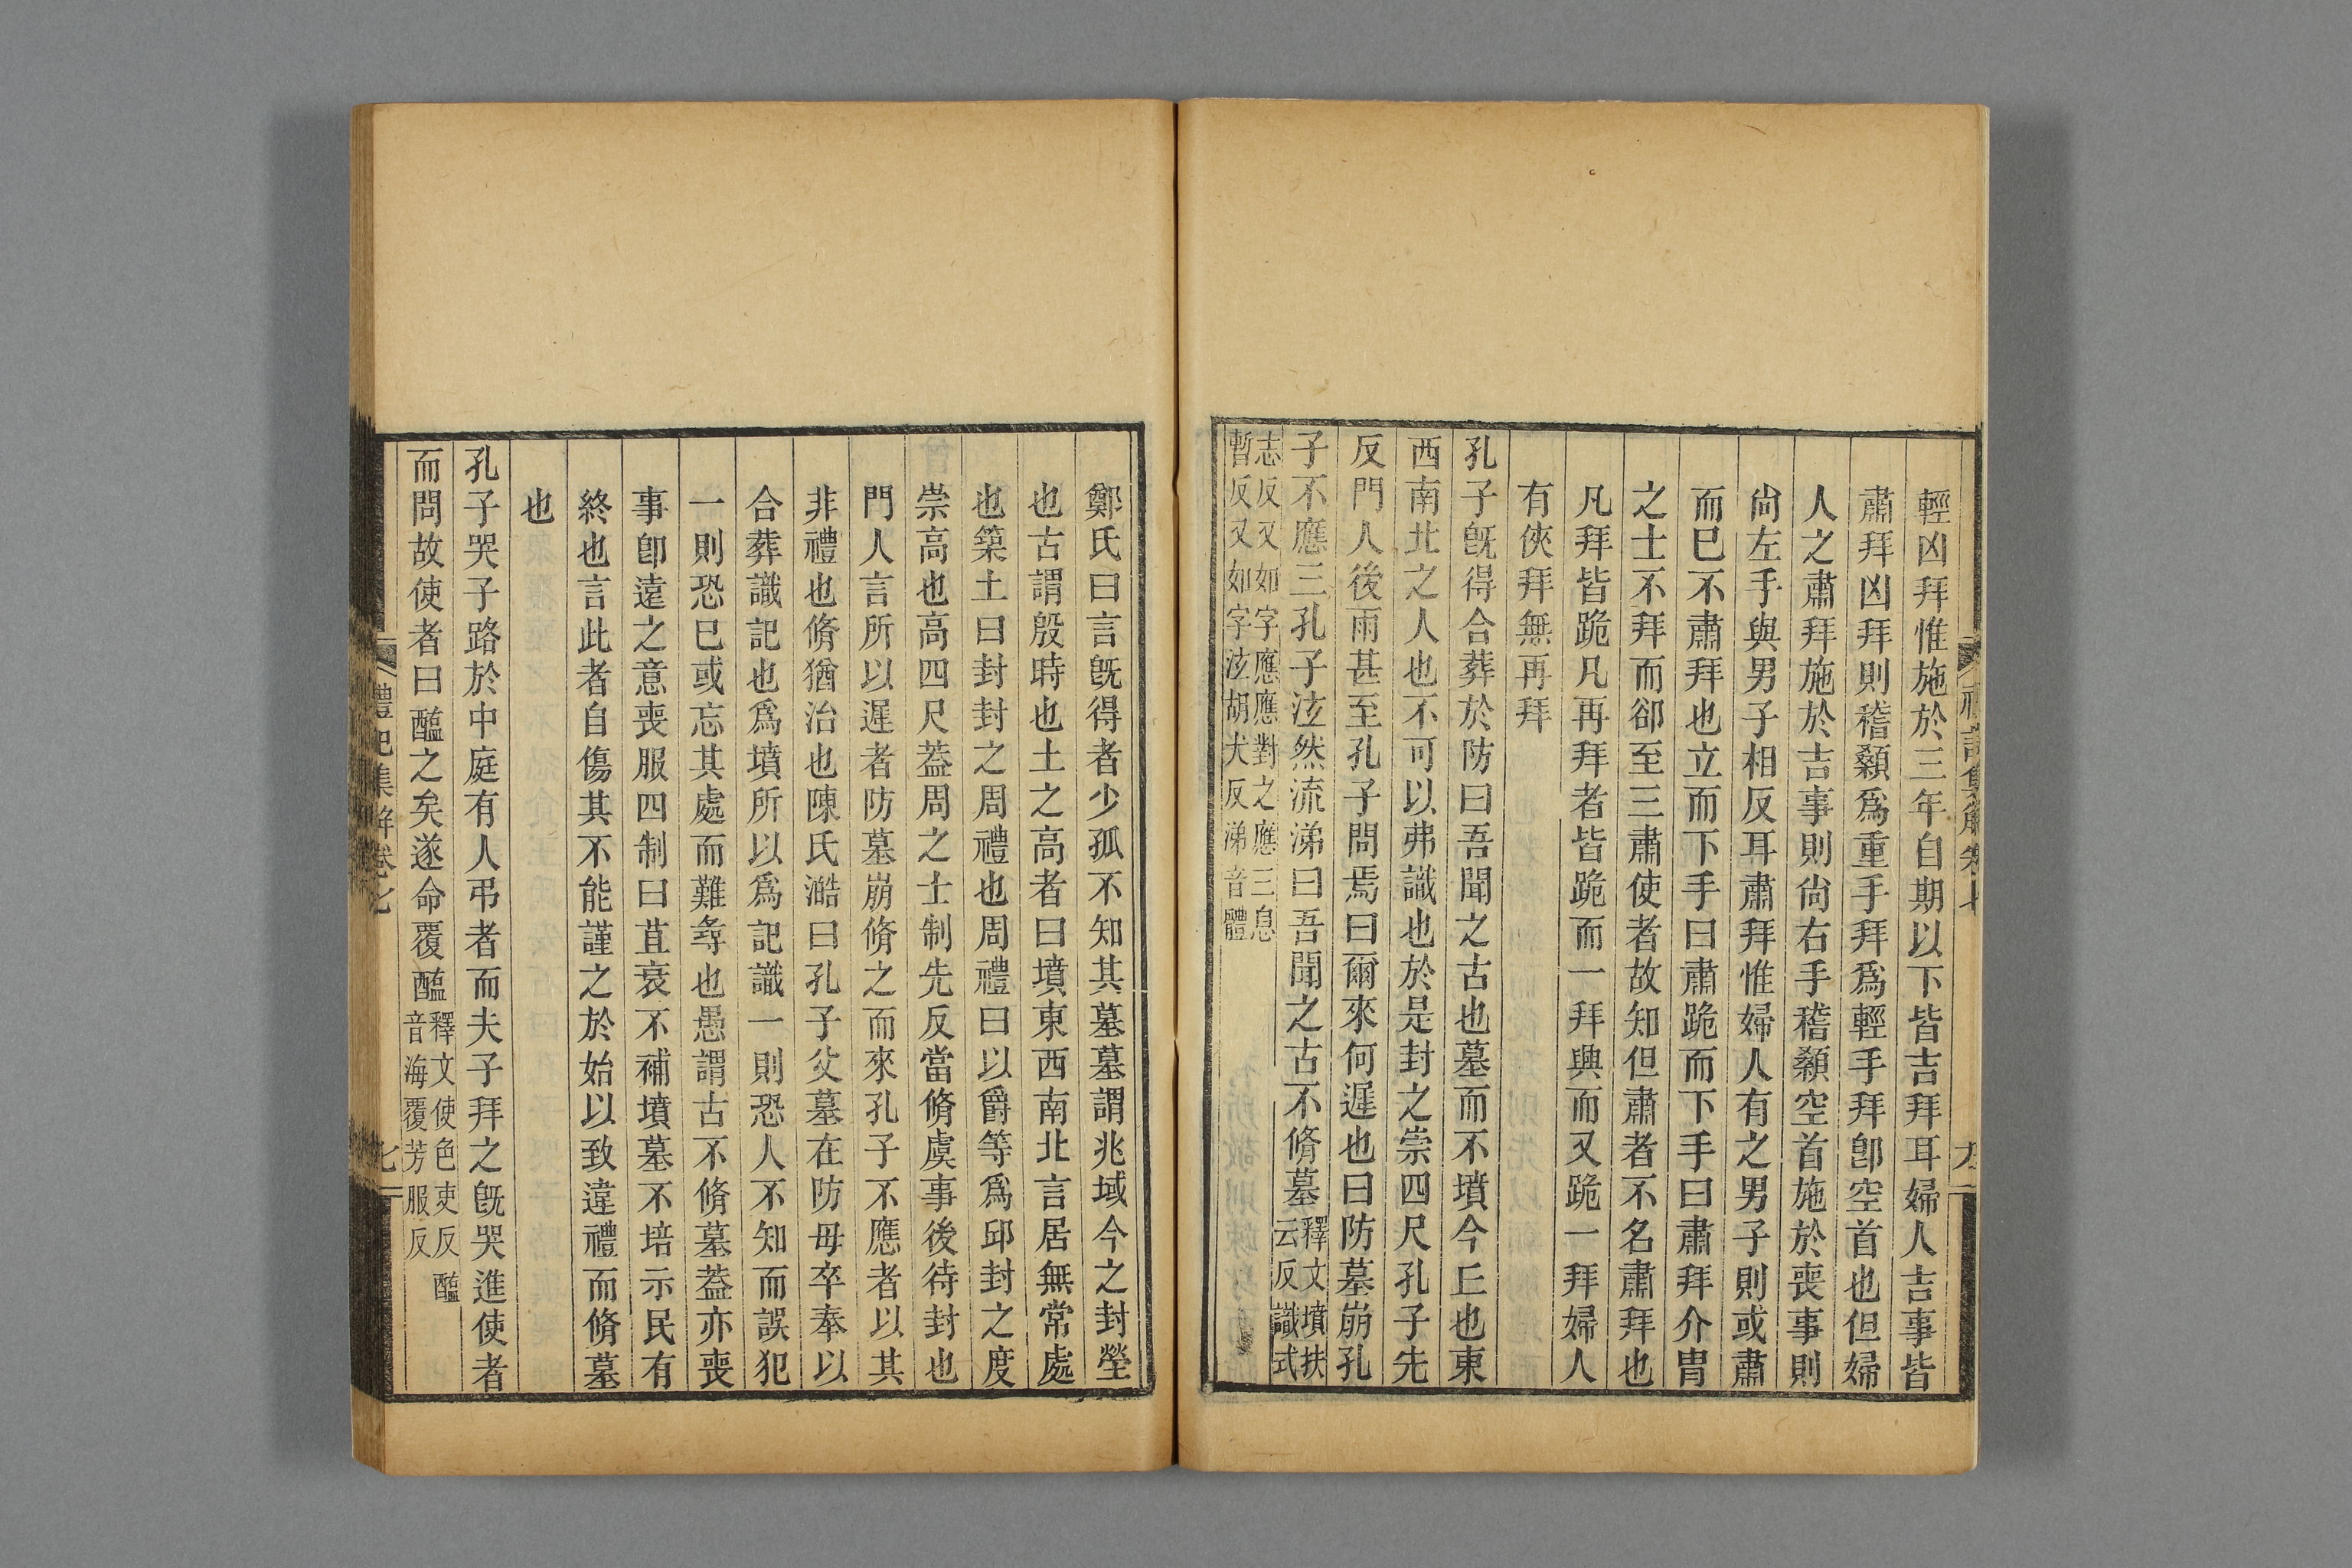 輕凶拜惟施於三年自期以下皆吉拜耳婦人吉事皆
肅拜凶拜則稽顙爲重手拜爲輕手拜卽空首也但婦
人之肅拜施於吉事則尙右手稽顙空首施於喪事則
尙左手與男子相反耳肅拜惟婦人有之男子則或肅
而巳不肅拜也立而下手曰肅跪而下手曰肅拜介冑
之士不拜而郤至三肅使者故知但肅者不名肅拜也
凡拜皆跪凡再拜者皆跪而一拜興而又跪一拜婦人
有俠拜無再拜
孔子旣得合葬於防曰吾聞之古也墓而不墳今丘也東
西南北之人也不可以弗識也於是封之崇四尺孔子先
反門人後雨甚至孔子問焉曰爾來何遲也曰防墓崩孔
子不應三孔子泫然流涕曰吾聞之古不脩墓
釋文墳扶
云反識式
志反又如字應應對之應三息
暫反又如字泫胡犬反涕音體
鄭氏曰言旣得者少孤不知其墓墓謂兆域今之封塋
也古謂殷時也土之高者曰墳東西南北言居無常處
也築土曰封封之周禮也周禮曰以爵等爲邱封之度
崇高也高四尺葢周之士制先反當脩虞事後待封也
門人言所以遲者防墓崩脩之而來孔子不應者以其
非禮也脩猶治也陳氏澔曰孔子父墓在防母卒奉以
合葬識記也爲墳所以爲記識一則恐人不知而誤犯
一則恐巳或忘其處而難尋也愚謂古不脩墓葢亦喪
事卽遠之意喪服四制曰苴衰不補墳墓不培示民有
終也言此者自傷其不能謹之於始以致違禮而脩墓
也
孔子哭子路於中庭有人弔者而夫子拜之旣哭進使者
而問故使者曰醢之矣遂命覆醢
釋文使色吏反醢
音海覆芳服反
禮記集解卷七